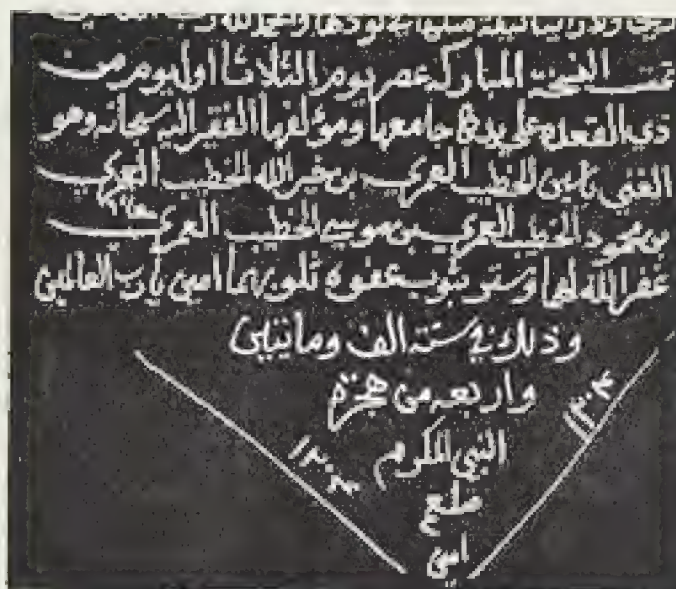 تمت النسخة المباركة عصر يوم الثلاثا اول يوم من
ذي القعدة على يد جامعها ومؤلفها الفقير اليه سبحانه وهو
الغني ياسين الخطيب العمري بن خير الله الخطيب العمري
بن محمود الخطيب العمري بن موسى الخطيب العمري
غفر الله لهما وستر بثوب عفوه ذنوبهما امين يا رب العالمين
وذلك في سنة الف ومايتين
واربعه من هجرة
النبي المكرم
صلعم
امين
١٢٠٤
١٢٠٤